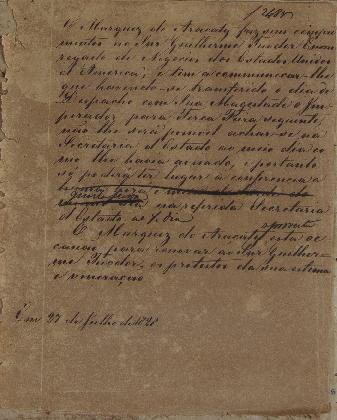 O Marquez de Aracaty faz seus cumpri
mentos ao Snr Guilherme Tudor Encar
regado de Negocios dos Estados Unidos
d'America; e tem a communicar-lhe
que havendo-se transferido o dia de
Despacho com Sua Magestade o Im
perador para Terça feira seguinte,
não lhe será possivel achar-se na
Secretaria d'Estado ao meio dia co
mo lhe havia avisado, e portanto
só poderá ter lugar a conferencia a
hora e
Quarta feira
na referida Secretaria
d'Estado
O Marquez de Aracaty aproveita
esta oc
casião para renovar ao Snr Guilher
me Tudor, os protestos da sua estima
e veneração
Em 27 de Julho de 1828